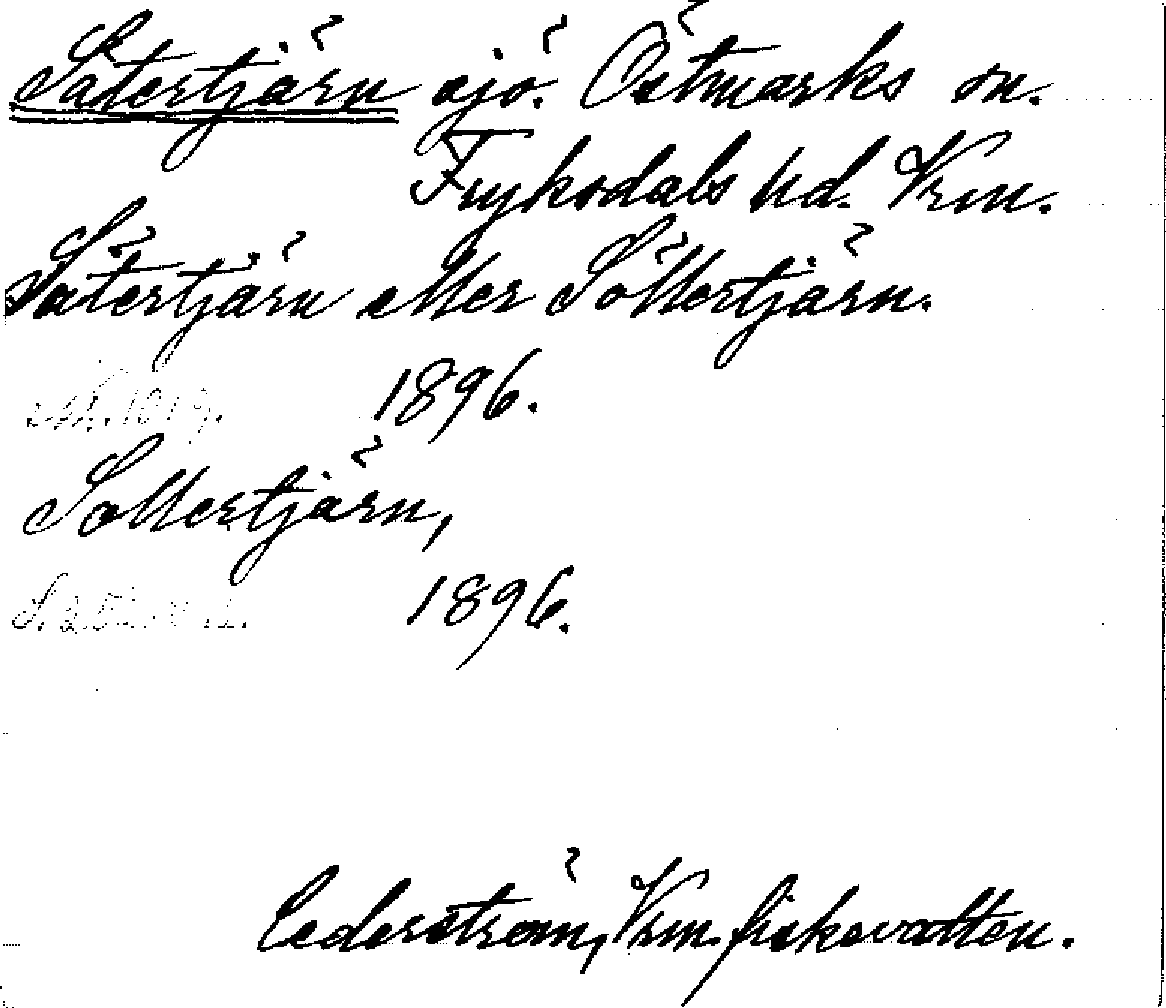 Sätertjärn sjö. Östmarks sn.
Fryksdals hd. Vrm.
Sätertjärn eller Söllertjärn.
1896.
Sollertjärn,
1896.
Cederström, Vrm. fiskevatten.